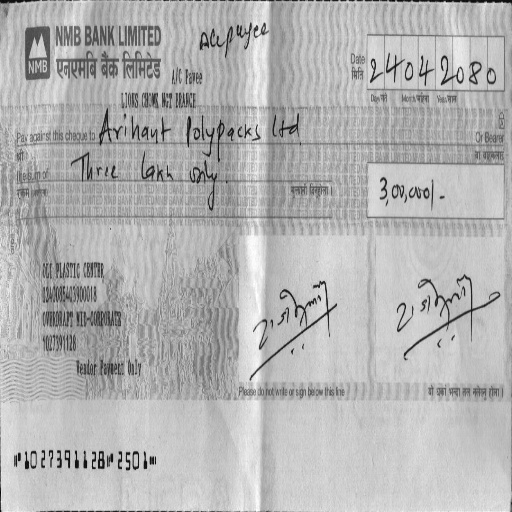 NMB BANK LIMITED
एनएमबि बैंक लिमिटेड
NMB
A/C Payee
A/C Payee
LIONS CHOWK NGT BRANCH
Date
मिति
24042080
Day/गते Month/महिना Year/साल
Pay against this cheque to Arihant Polypacks Ltd
Or Bearer
वा वाहकलाई
the sum of Three lakh only.
3,00,000/-
OGI PLASTIC CENTER
OVERDRAFT MID-CORPORATE
1027391128
Vendor Payment Only
Please do not write or sign below this line
1027391128 2501